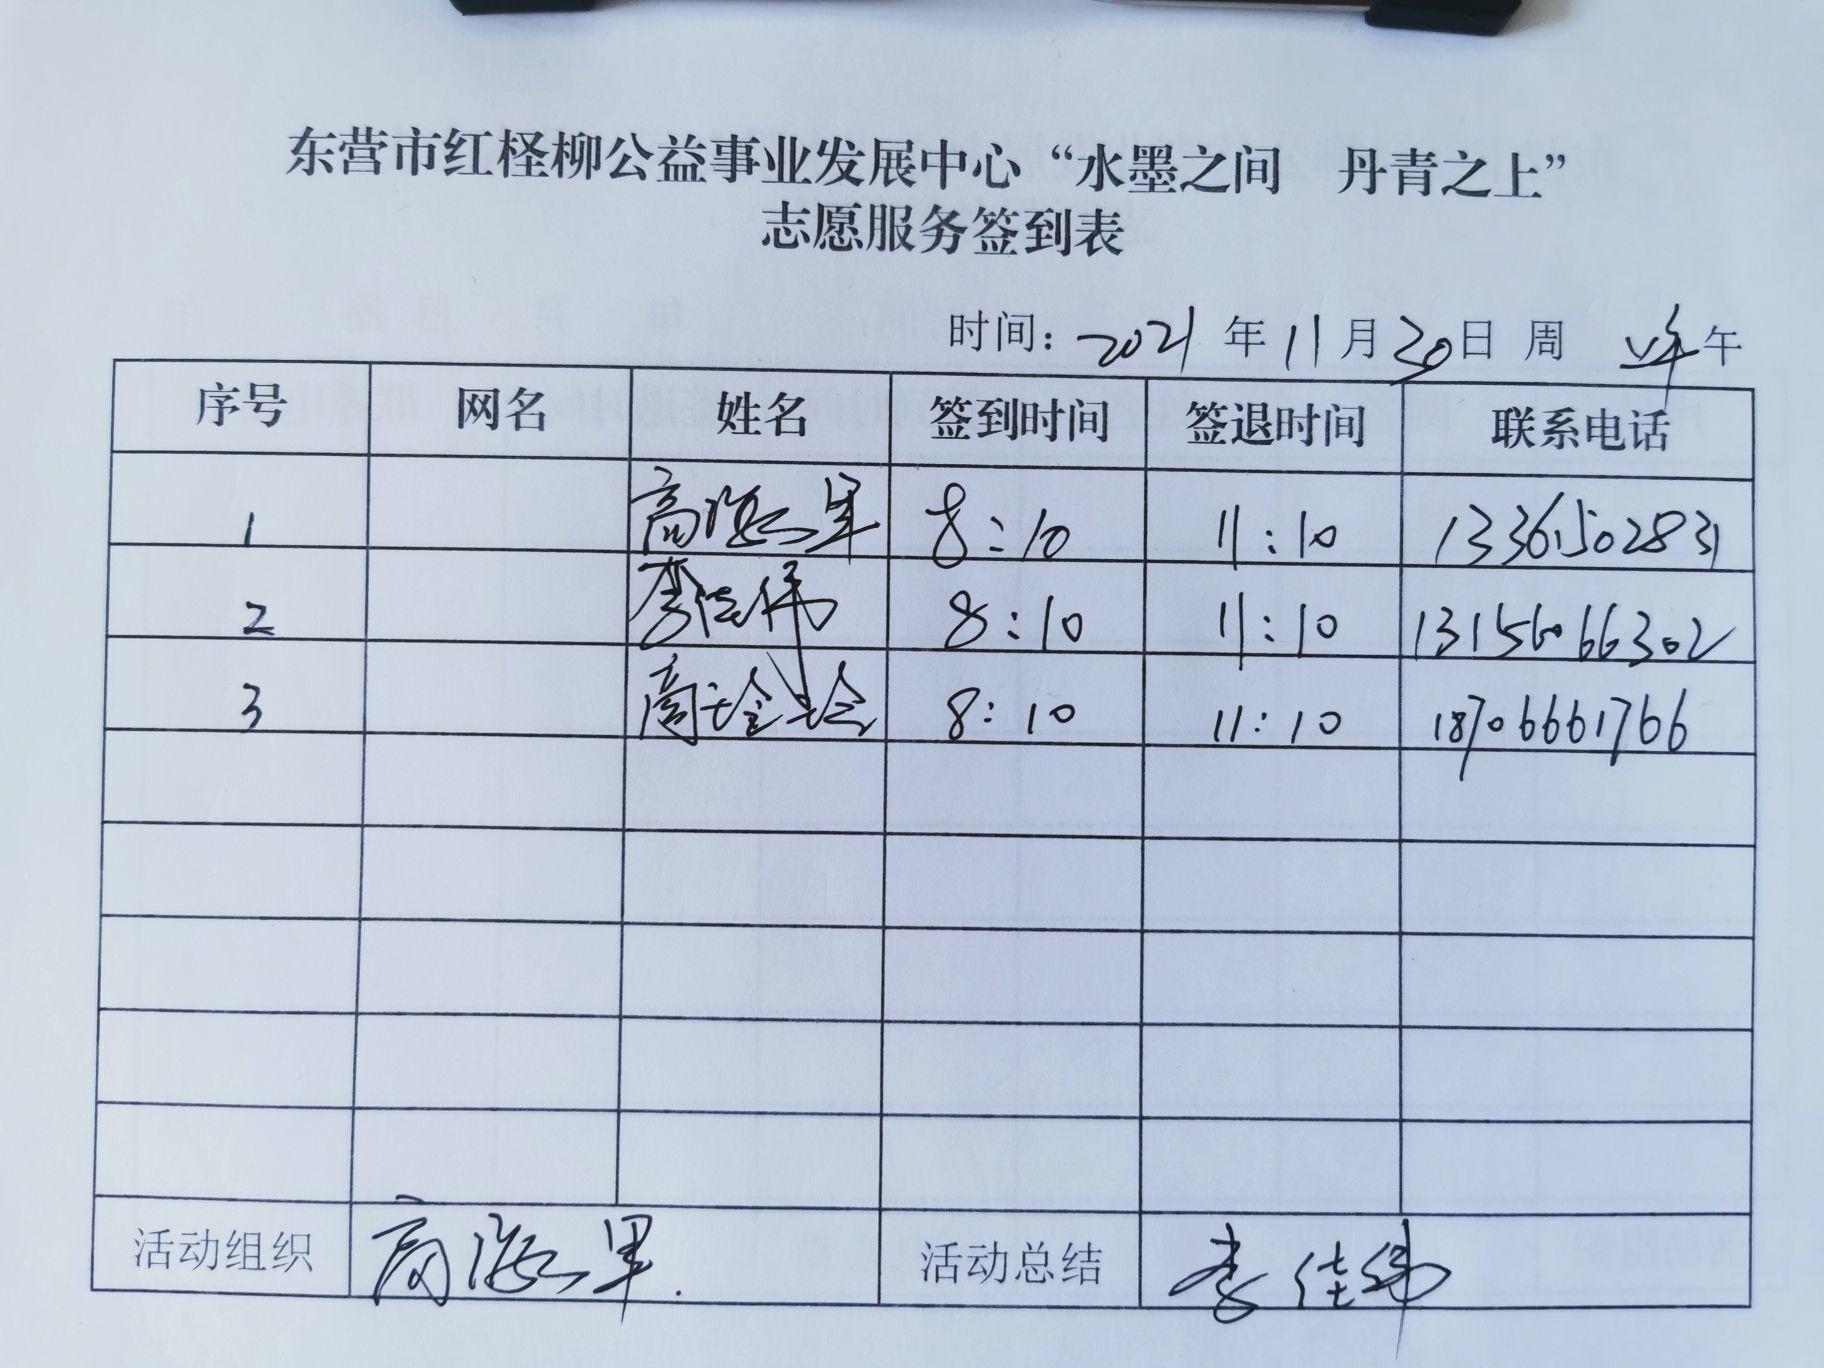 东营市红柽柳公益事业发展中心“水墨之间 丹青之上”
志愿服务签到表
时间: 2021 年 11 月 30 日 周 午
序号 网名 姓名 签到时间 签退时间 联系电话
1 高 8:10 11:10 13361502831
2 李佳伟 8:10 11:10 13156066302
3 8:10 11:10 18706661766
活动组织 高 活动总结 李佳伟